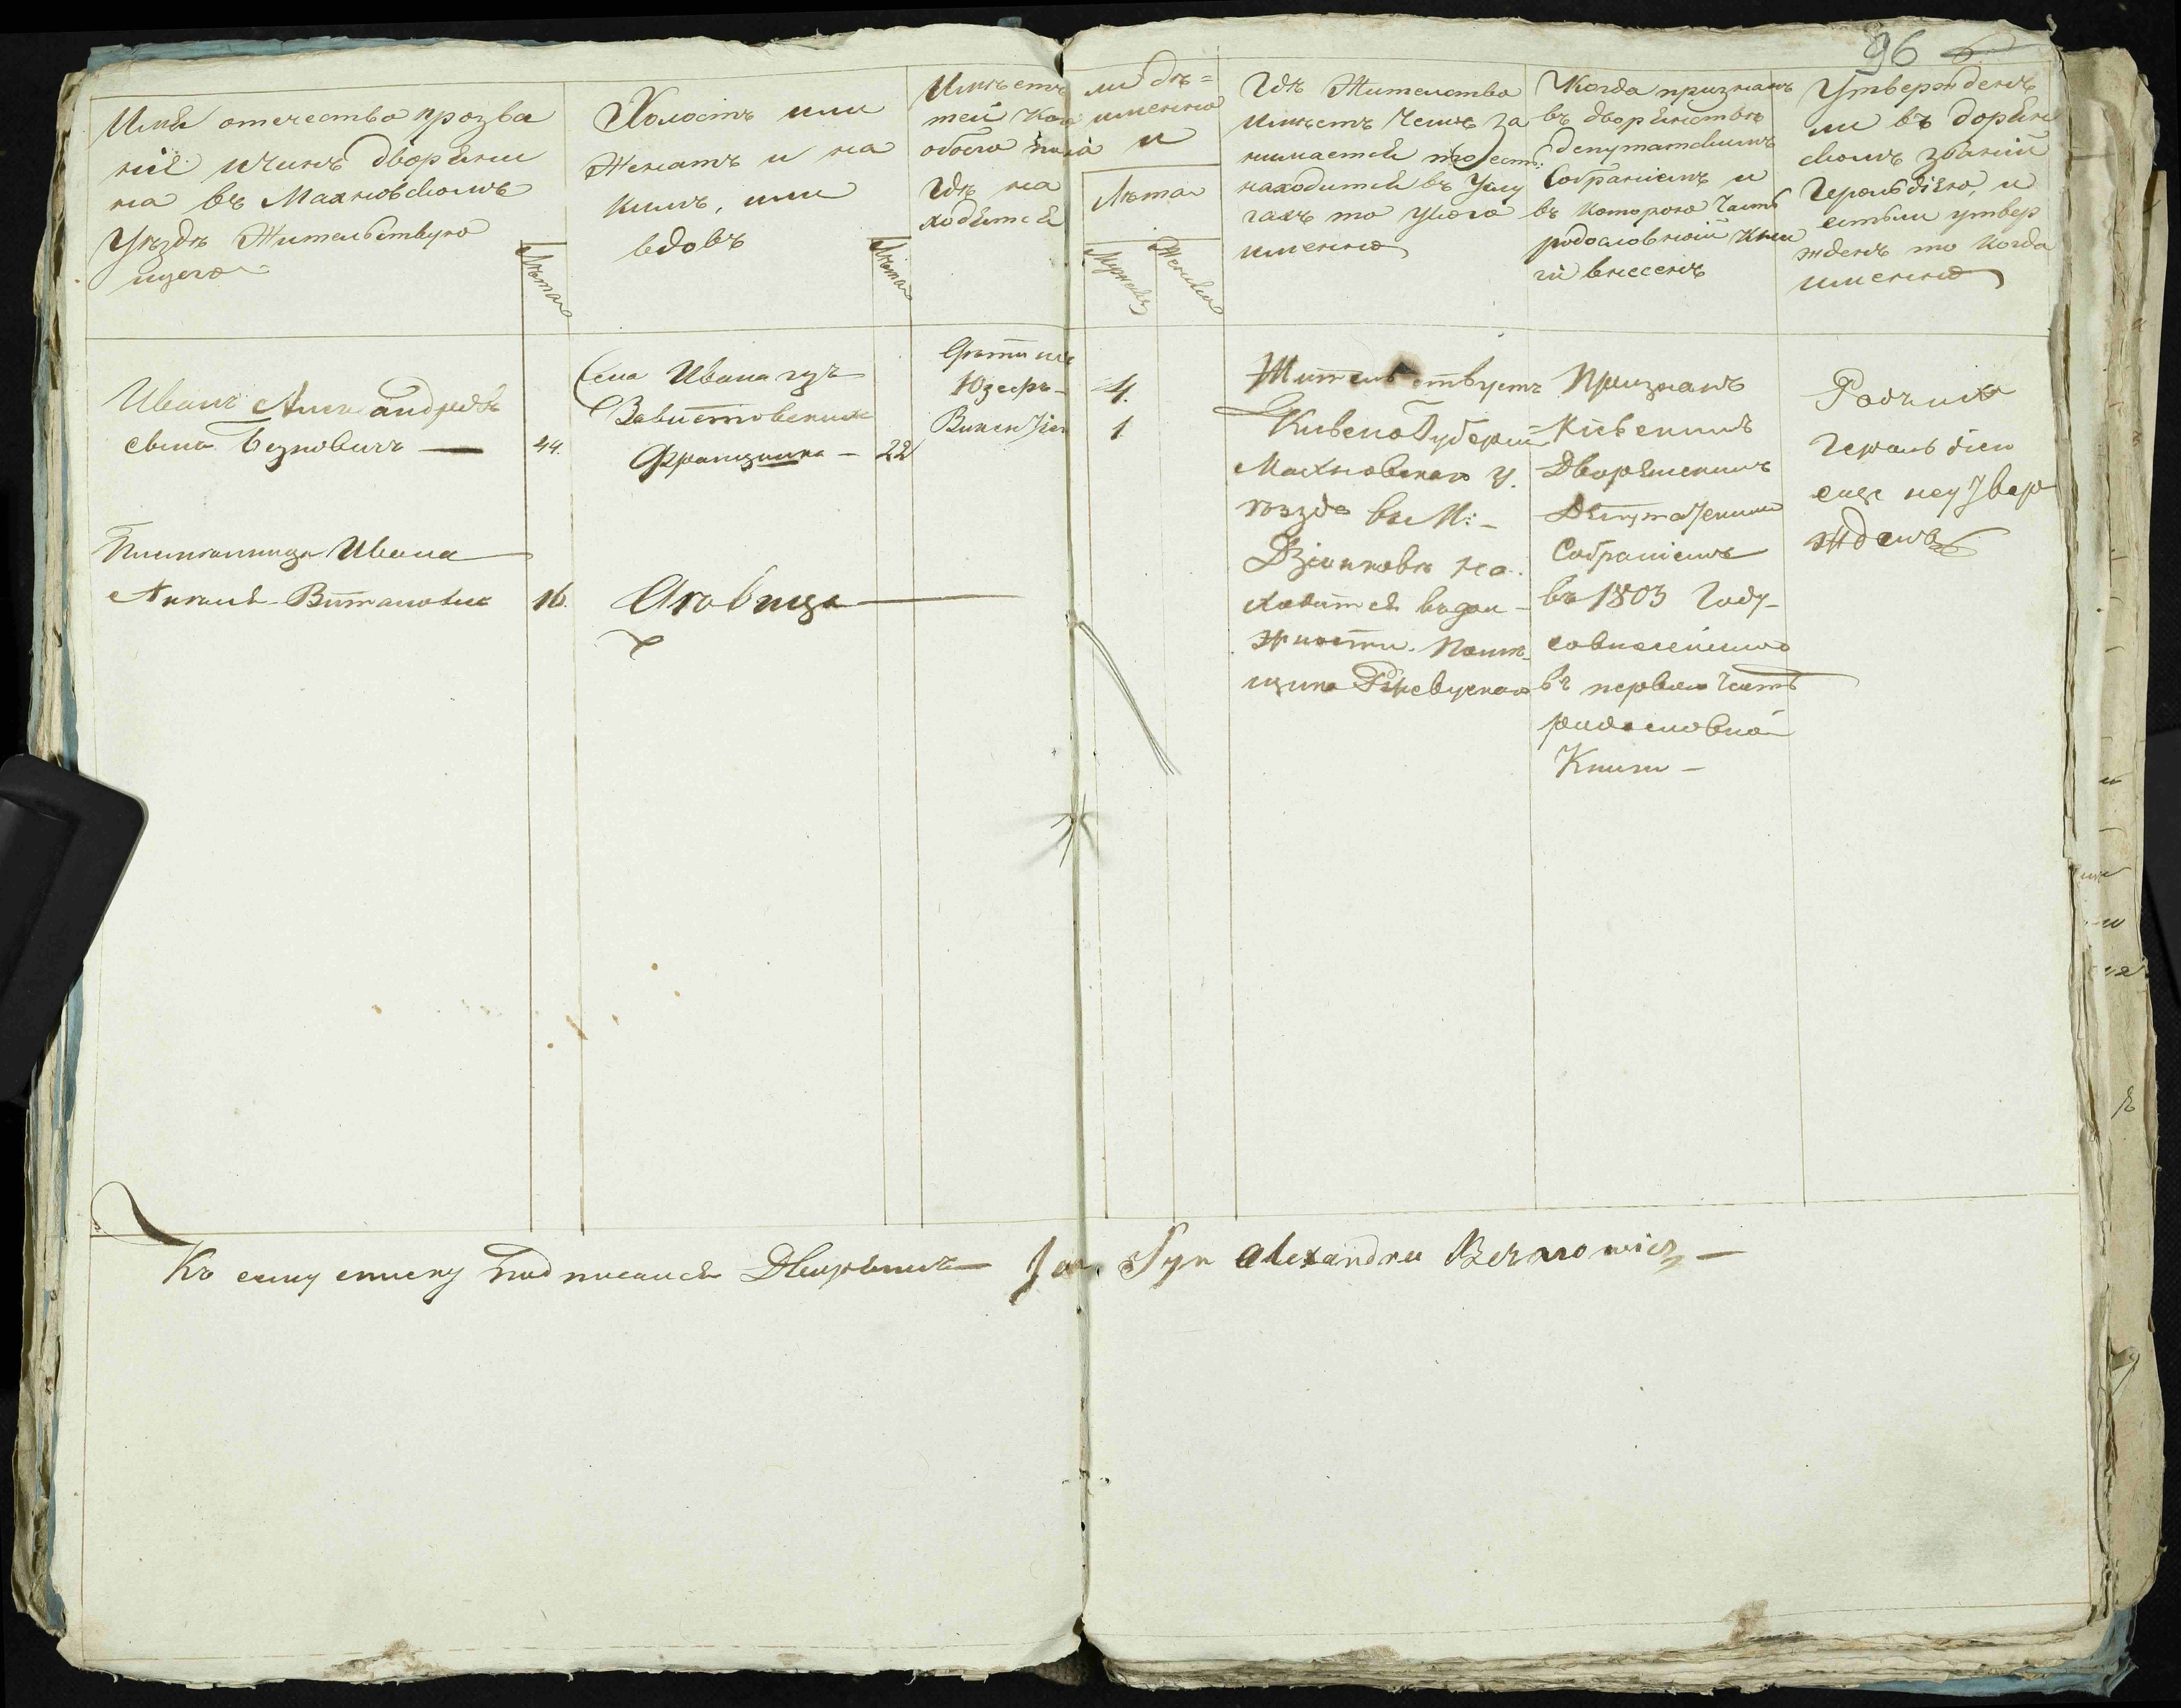 96
Имя отечество прозва
ніе и чинъ дворяни
на въ Махновскомъ
Уѣздѣ Жительствую
щего
Лѣта
Холостъ или
Женатъ и на
комъ, или
вдовъ
Лѣта
Имѣетъ ли дѣ=
тей кого именно
обоего пола и
гдѣ на
ходятся
Лѣта
Мужеска
Женска
Гдѣ Жителство
имѣетъ Чемъ за
нимается то есть:
находится въ Услу
гахъ то у кого
именно
Когда признанъ
въ дворянствѣ
депутатскимъ
Собраніемъ и
въ которою Часть
родословной Кни
ги внесенъ
Утвержденъ
ли въ дорян
скомъ званіи
Герольдіею, и
естьли утвер
жденъ то когда
именно
Иванъ Александровъ
сынъ Безновичъ —
44.
Сена Ивана изъ
Завистовскихъ
Францишка —
22
Юзефъ —
4.
Викентій
1
Жительствуетъ
Кивской Губерніи
Махновскаго у.
ѣзда въ М: —
Дзюнковѣ на.
ходится въ дол —
жности. Помѣ
щика Ржевускаго
Признанъ
Кіевскимъ
Дворянскимъ
Депутатскимъ
Собраніемъ
въ 1803 Году —
въ первою Часть
родословной
Книги —
Герольдіею
еще неутвер
жденъ
Племянница Ивана
16.
Къ сему списку подписался Дворянинъ Jan Syn Alexandra Beznowicz —